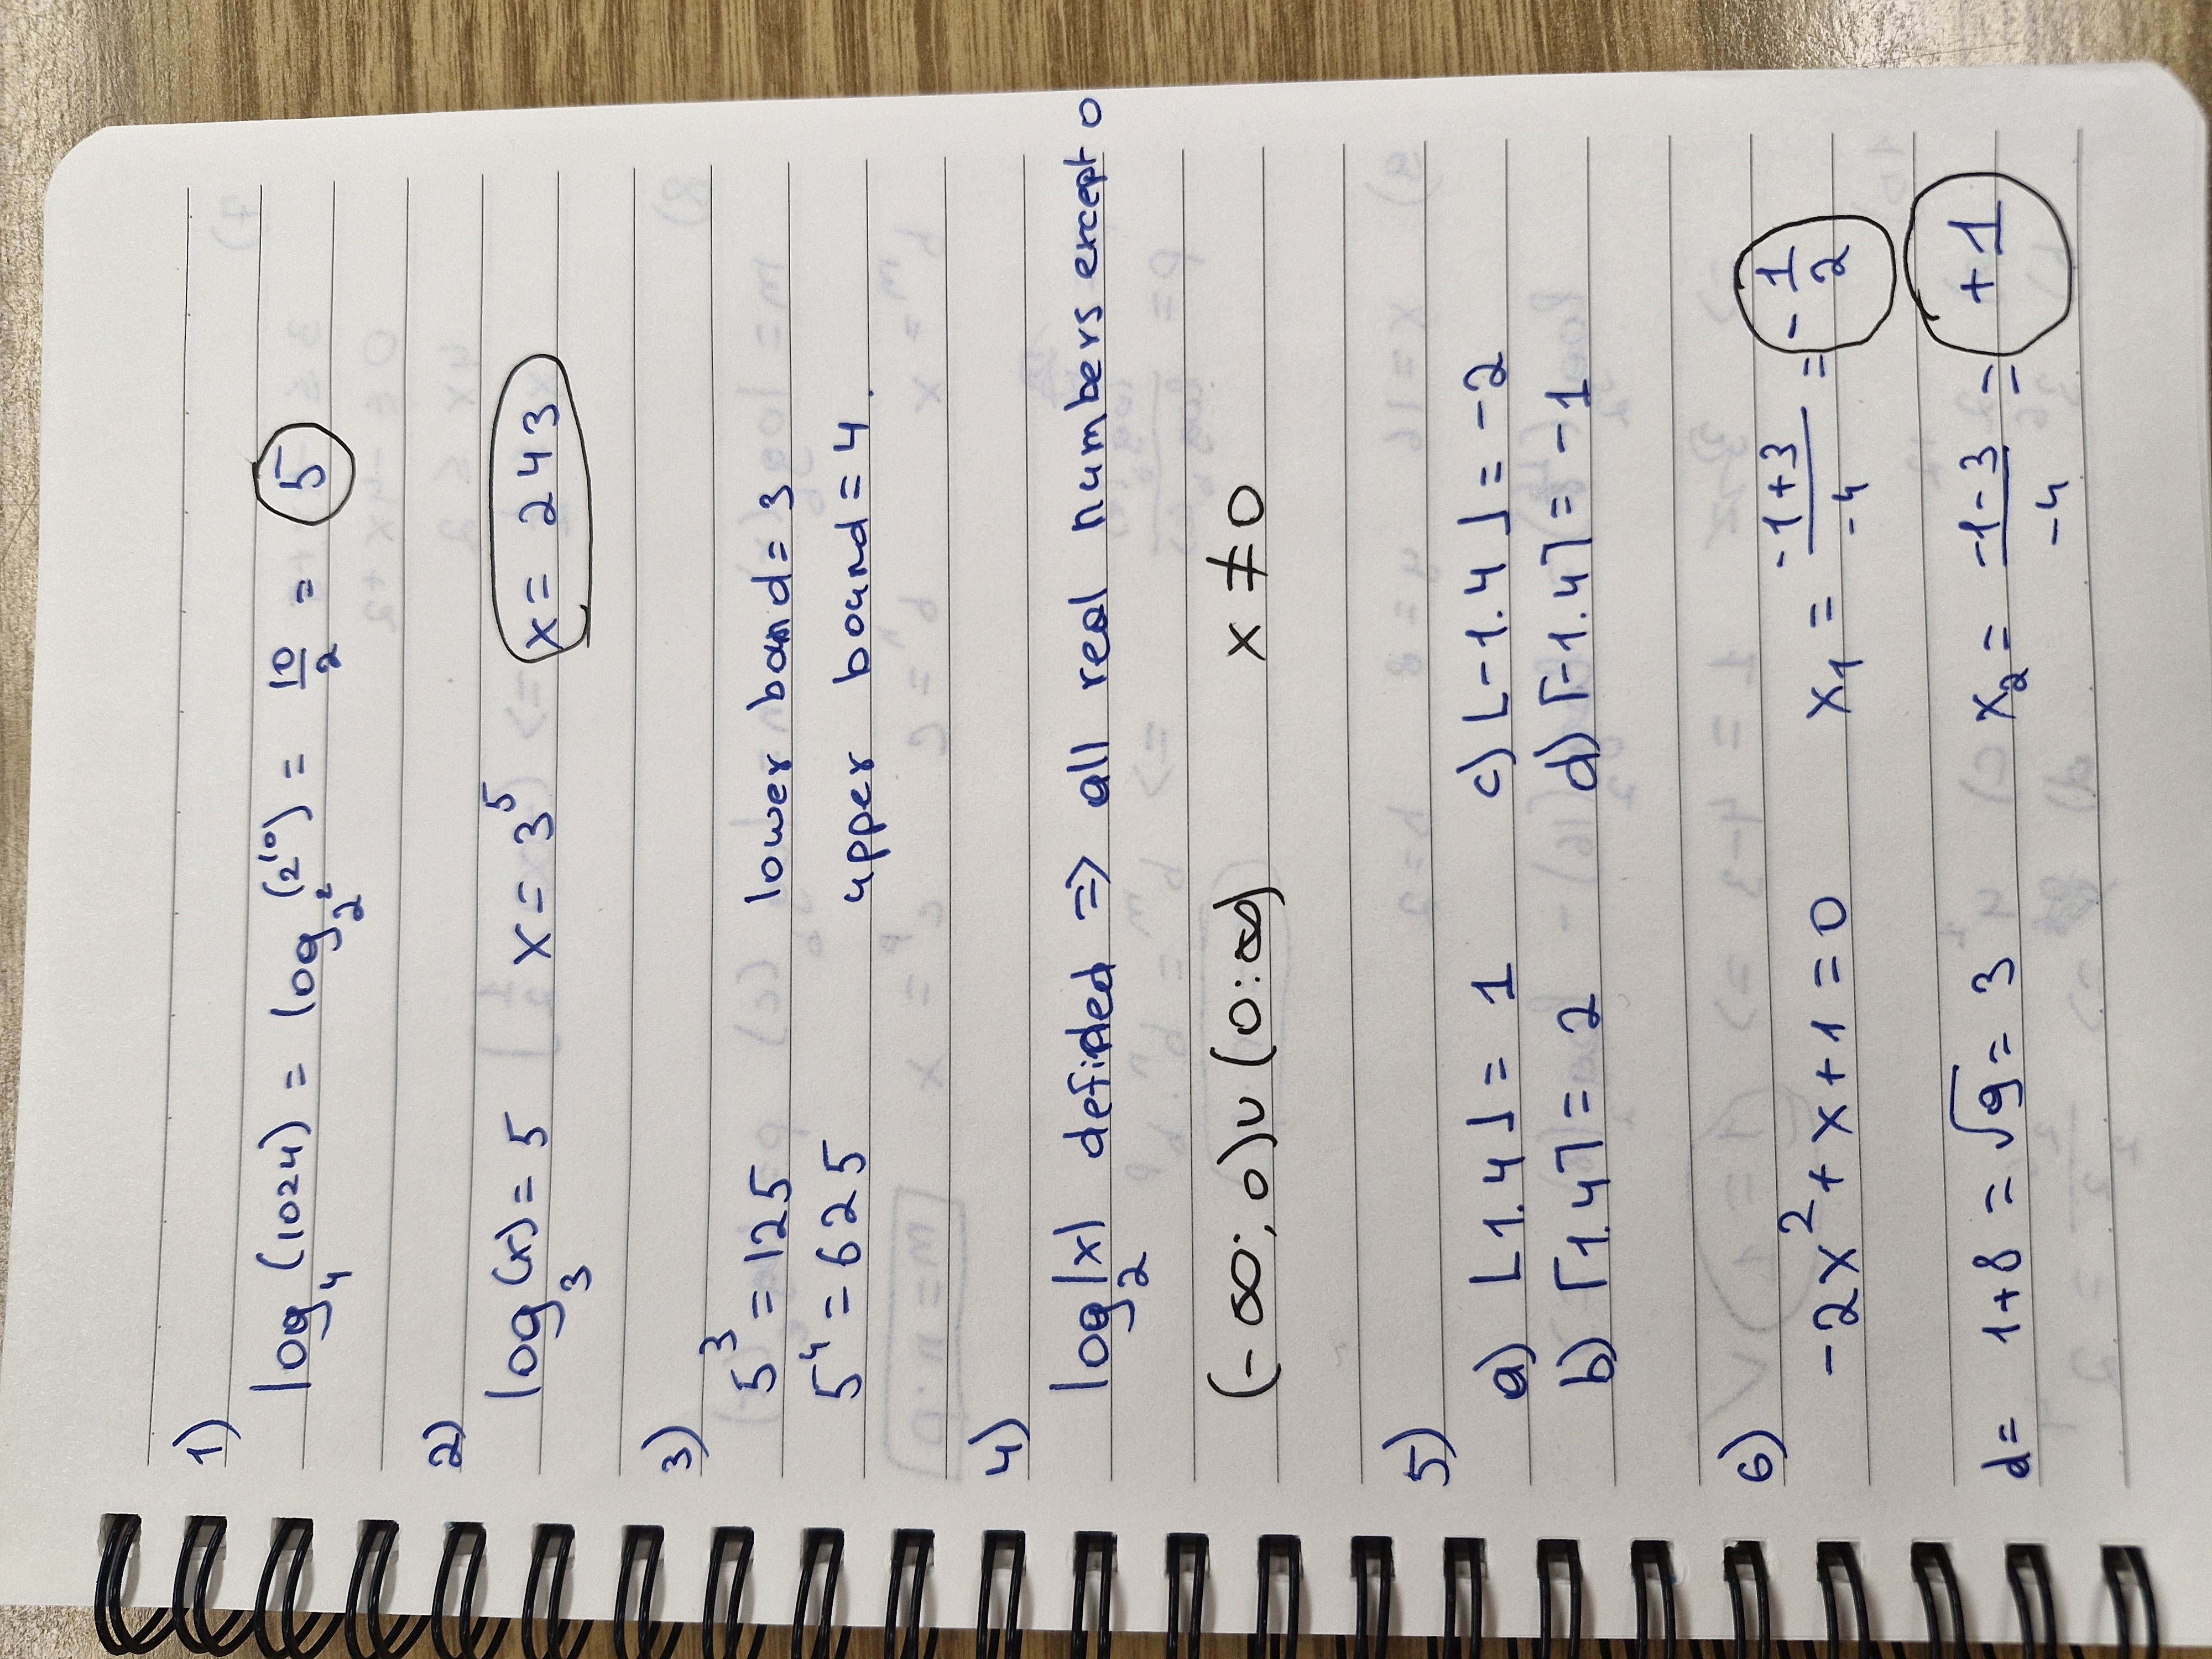 1)
log₄(1024) = log_2²(2¹⁰) = 10/2 = 5
2)
log₃(x) = 5 x = 3⁵ x = 243
3)
5³ = 125 lower bound = 3
5⁴ = 625 upper bound = 4.
4)
log₂|x| defined => all real numbers except 0
(-∞; 0)∪(0:∞) x ≠ 0
5)
a) ⌊1.4⌋ = 1 c) ⌊-1.4⌋ = -2
b) ⌈1.4⌉ = 2 d) ⌈-1.4⌉ = -1
6)
-2x² + x + 1 = 0 x₁ = (-1+3)/-4 = -1/2
d = 1+8 = √9 = 3 x₂ = (-1-3)/-4 = +1